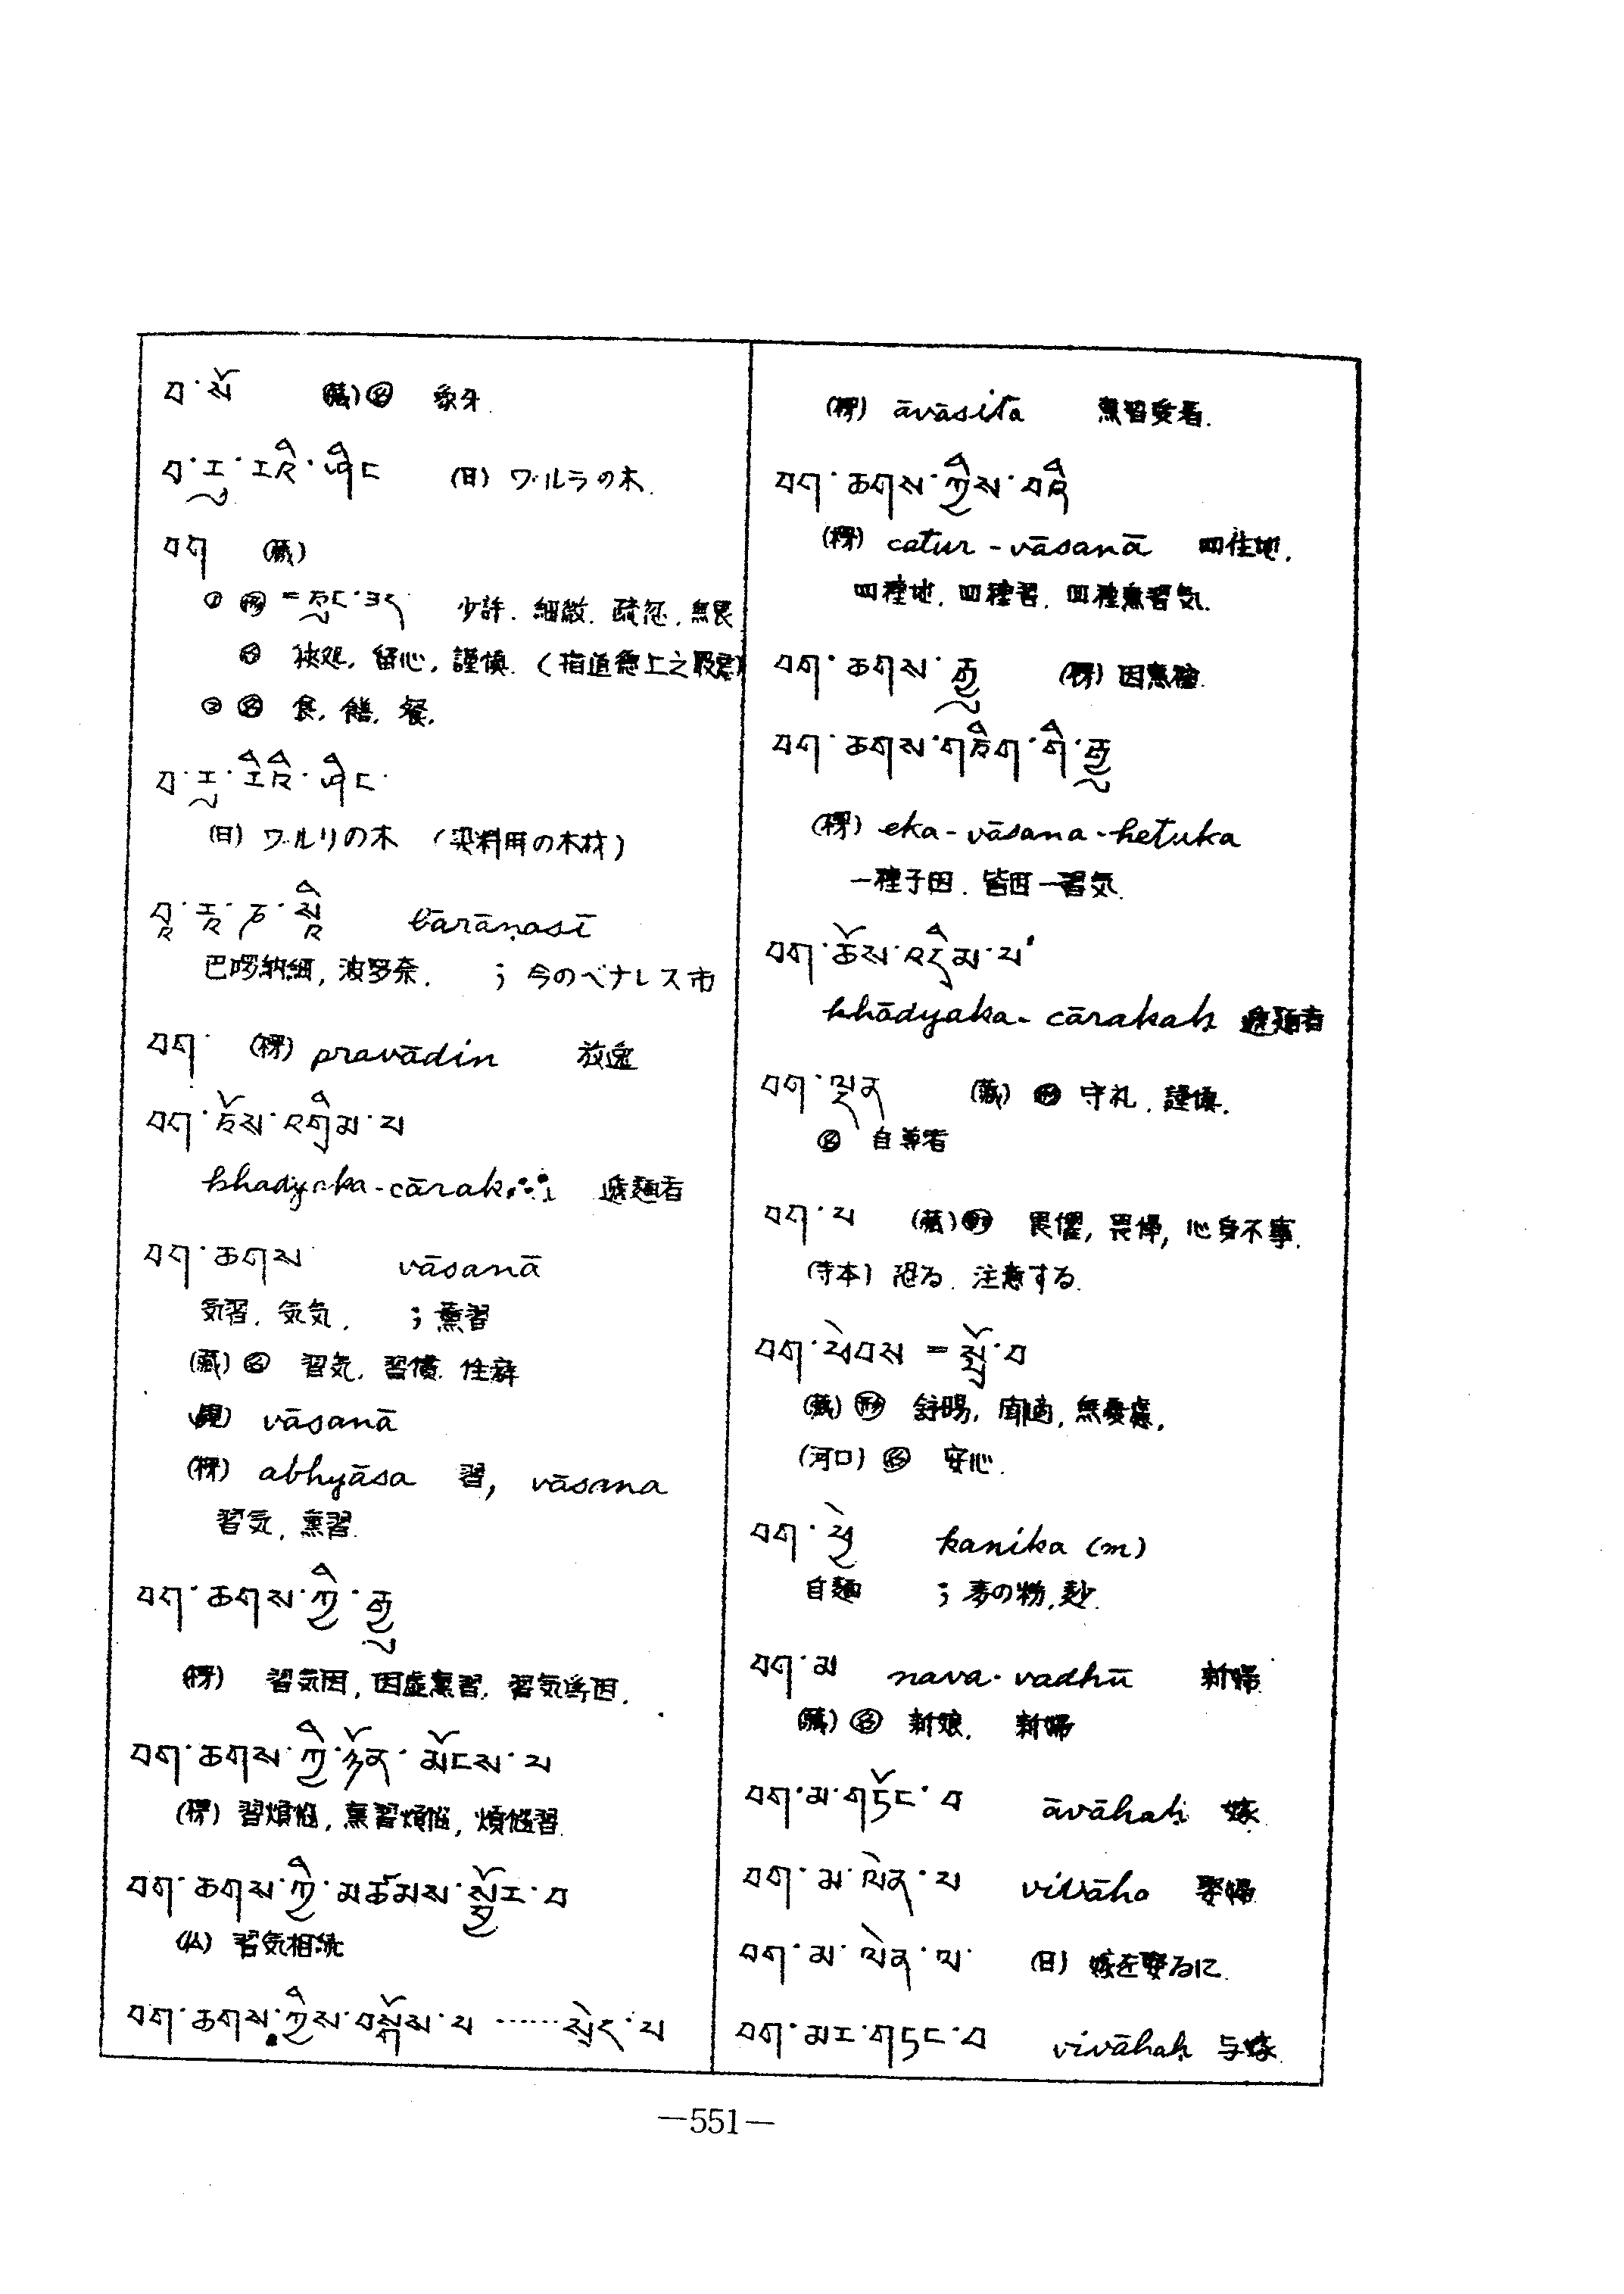 བ་སོ (蔵)名 象牙.
བ་རུ་རའི་ཤིང (日) ワ・ルラの木.
བག (蔵)
① 形 = ཅུང་ཟད 少許. 細微. 疏忽. 無畏
名 狭処, 留心, 謹慎.(指道德上之
② 名 食, 饍, 餐.
བ་རུ་རིའི་ཤིང་
(日) ワ・ルリの木 (染料用の木材)
bārāṇasī
巴啰納細, 波罗奈. ; 今のベナレス市
བག་ (梵) pravādin 放逸
བག་ཅོས་འགྲིམ་པ
khadyaka-cārak 遞麺者
བག་ཆགས་ vāsanā
気習. 気気. ; 薫習
(蔵) 名 習気, 習慣. 性癖
vāsanā
(梵) abhyāsa 習, vāsana
習気, 熏習.
བག་ཆགས་ཀྱི་རྒྱུ
(梵) 習気因, 因虚熏習, 習気
བག་ཆགས་ཀྱི་ཉོན་མོངས་པ
(梵) 習煩悩, 熏習煩悩, 煩悩習.
བག་ཆགས་ཀྱི་མཚམས་སྦྱོར་བ
習気相続
བག་ཆགས་ཀྱིས་བསྒོས་པ ……
(梵) āvāsita 熏習
བག་ཆགས་ཀྱིས་བཞི
(梵) catur-vāsanā 四住地.
四種地. 四種習. 四種熏習気.
བག་ཆགས་རྒྱུ (梵) 因熏
བག་ཆགས་གཅིག་གི་རྒྱུ
(梵) eka-vāsana-hetuka
一種子因. 皆因一習気.
བག་ཆོས་འདྲིམ་པ
khādyaka-cārakaḥ 遞麺者
བག་ལྡན (蔵) 形 守礼. 謹慎.
名 自尊者
བག་པ (蔵)形 畏懼, 畏怖, 心身不寧.
(寺本) 恐る. 注意する.
བག་ཕེབས = སྤྲོ་བ
(蔵) 形 舒暢, 閒適, 無憂慮.
(河口) 名 安心.
བག་ཕྱེ kanika (m)
自麺 ; 麦の粉, 麨.
བག་མ nava-vadhū 新婦
(蔵) 名 新娘. 新婦
བག་མ་གཏོང་བ āvāhaḥ 嫁
བག་མ་ལེན་པ vivāho 娶婦
བག་མ་ལེན་ལ་ (日) 嫁を娶るに.
བག་མར་གཏང་བ vivāhaḥ 与嫁.
—551—